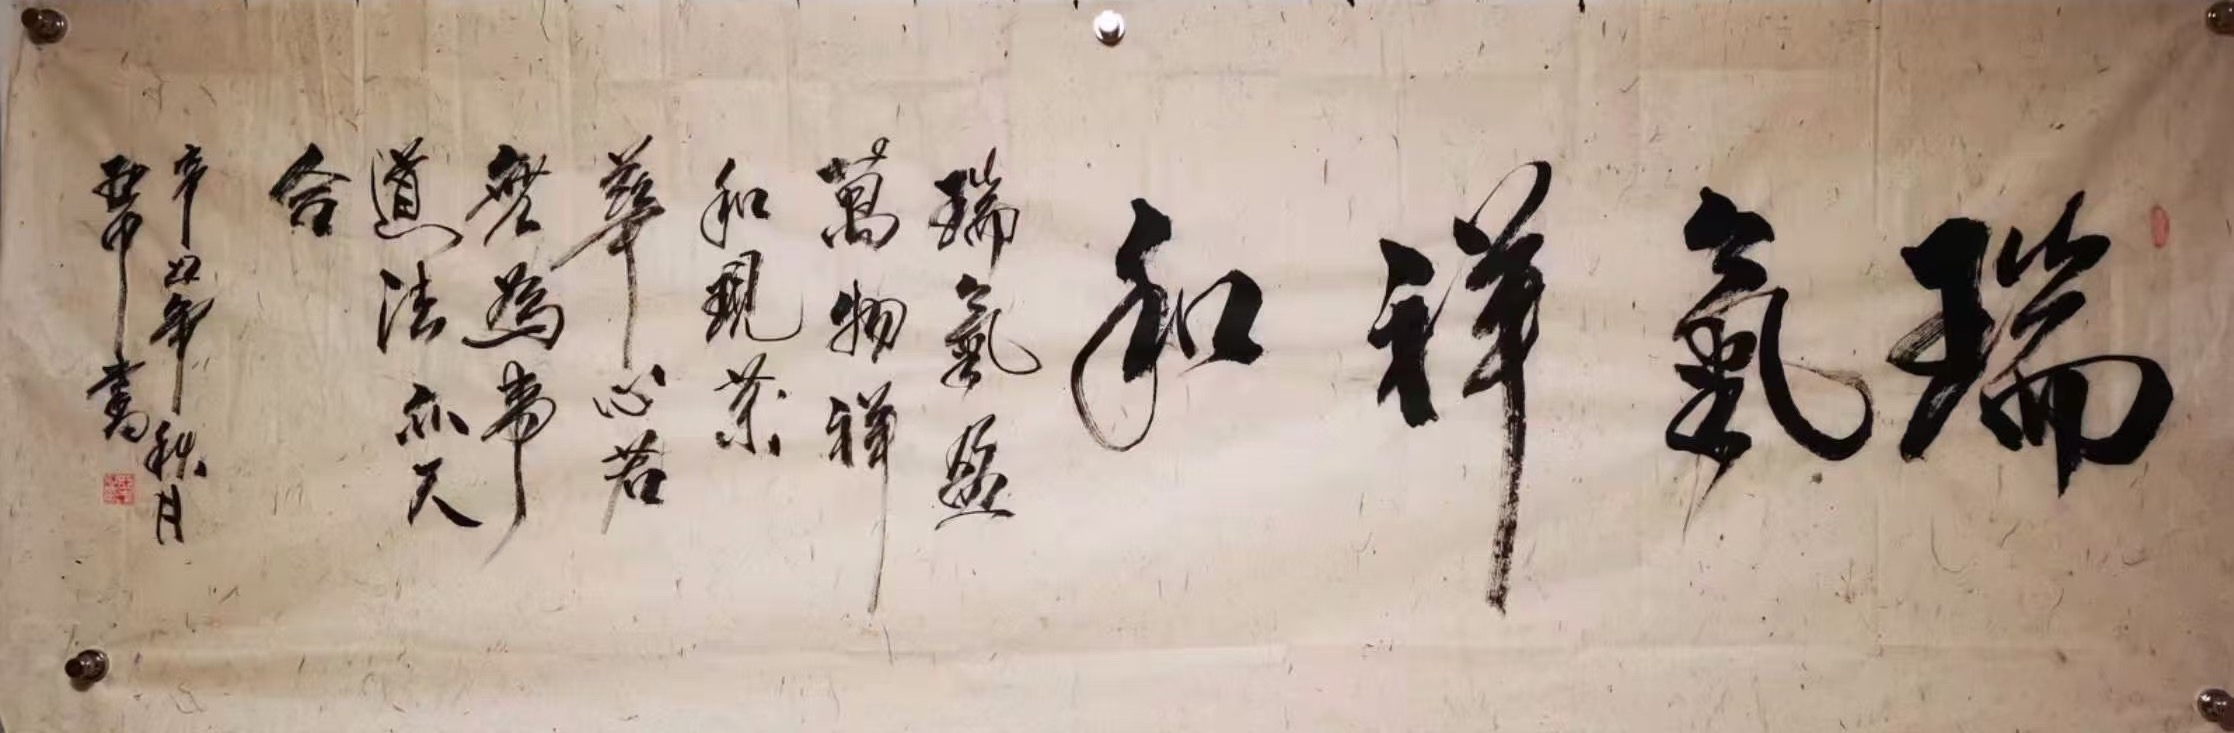 瑞氣祥和
瑞氣盈
萬物祥
和現荣
華心若
無為常
道法亦天
合
辛丑年秋月
書